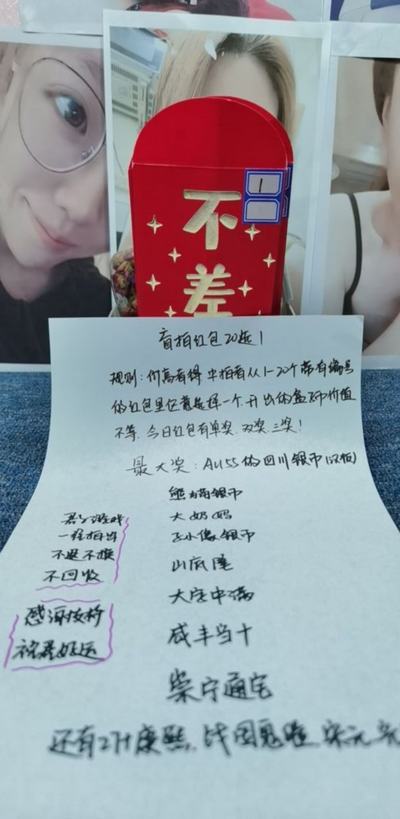 不差
1
盲拍红包20选1
规则:价高者得 中拍者从1-20个带有编号
的红包里任意选择一个,开出的盒子币价值
不等,今日红包有单奖,双奖,三奖!
最大奖:AU55的四川银币
熊猫银币
大奶妈
孙小像银币
山底尾
大定中满
咸丰当十
崇宁通宝
还有24康熙.战国鬼脸.宋元
游戏
一经拍出
不退不换
不回收
祝君好运